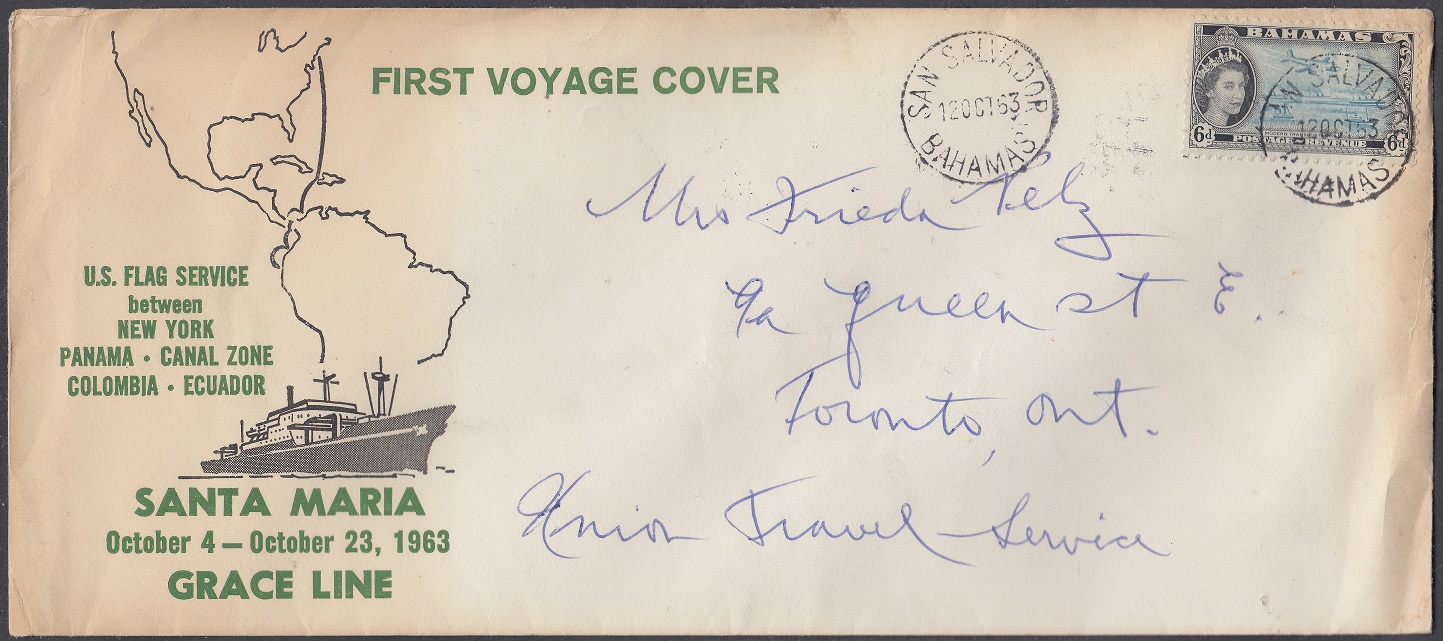 FIRST VOYAGE COVER
SAN SALVADOR
12 OCT 63
BAHAMAS
BAHAMAS
6d
POSTAGE & REVENUE
6d
SAN SALVADOR
12 OCT 63
BAHAMAS
Mrs Frieda Pelz
9a Queen St E.
Toronto, Ont.
Union Travel Service
U.S. FLAG SERVICE
between
NEW YORK
PANAMA • CANAL ZONE
COLOMBIA • ECUADOR
SANTA MARIA
October 4 — October 23, 1963
GRACE LINE